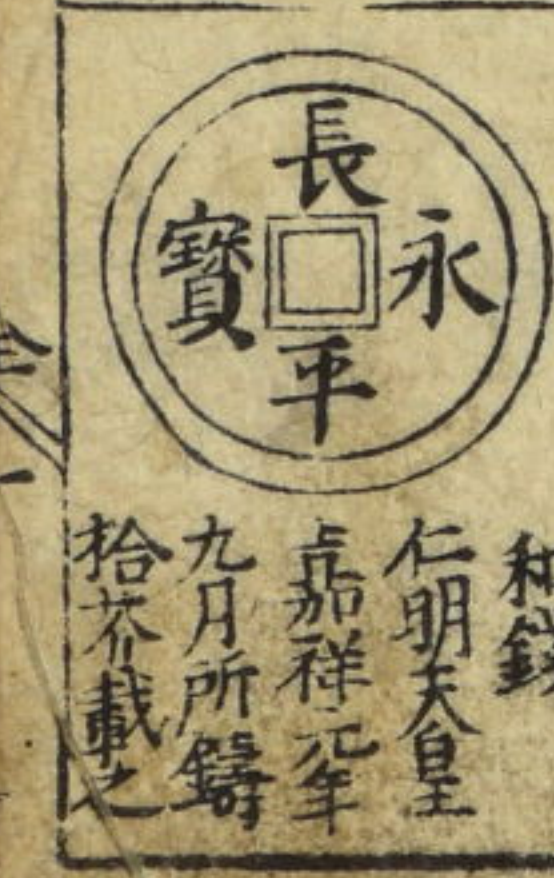 長平永寶
仁明天皇
嘉祥元年
九月所鑄
拾芥載之